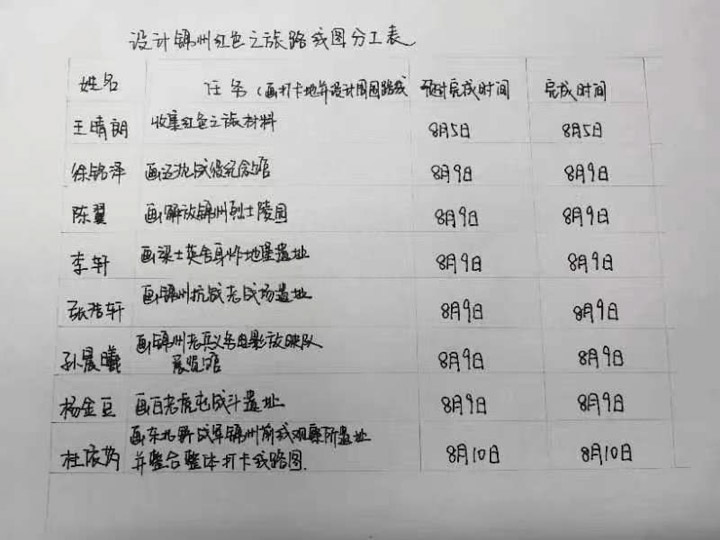 设计锦州红色之旅路线图分工表
姓名 任务（画打卡地并设计周围路线 预计完成时间 完成时间
王晴朗 收集红色之旅材料 8月5日 8月5日
徐铭泽 画辽沈战役纪念馆 8月9日 8月9日
陈翼 画解放锦州烈士陵园 8月9日 8月9日
李轩 画梁士英舍身炸地堡遗址 8月9日 8月9日
张浩轩 画锦州抗战老战场遗址 8月9日 8月9日
孙晨曦 画锦州老兵义务电影放映队 8月9日 8月9日
展览馆
杨金豆 画白老虎屯战斗遗址 8月9日 8月9日
杜依 画东北野战军锦州前线观察所遗址 8月10日 8月10日
并整合整体打卡线路图.